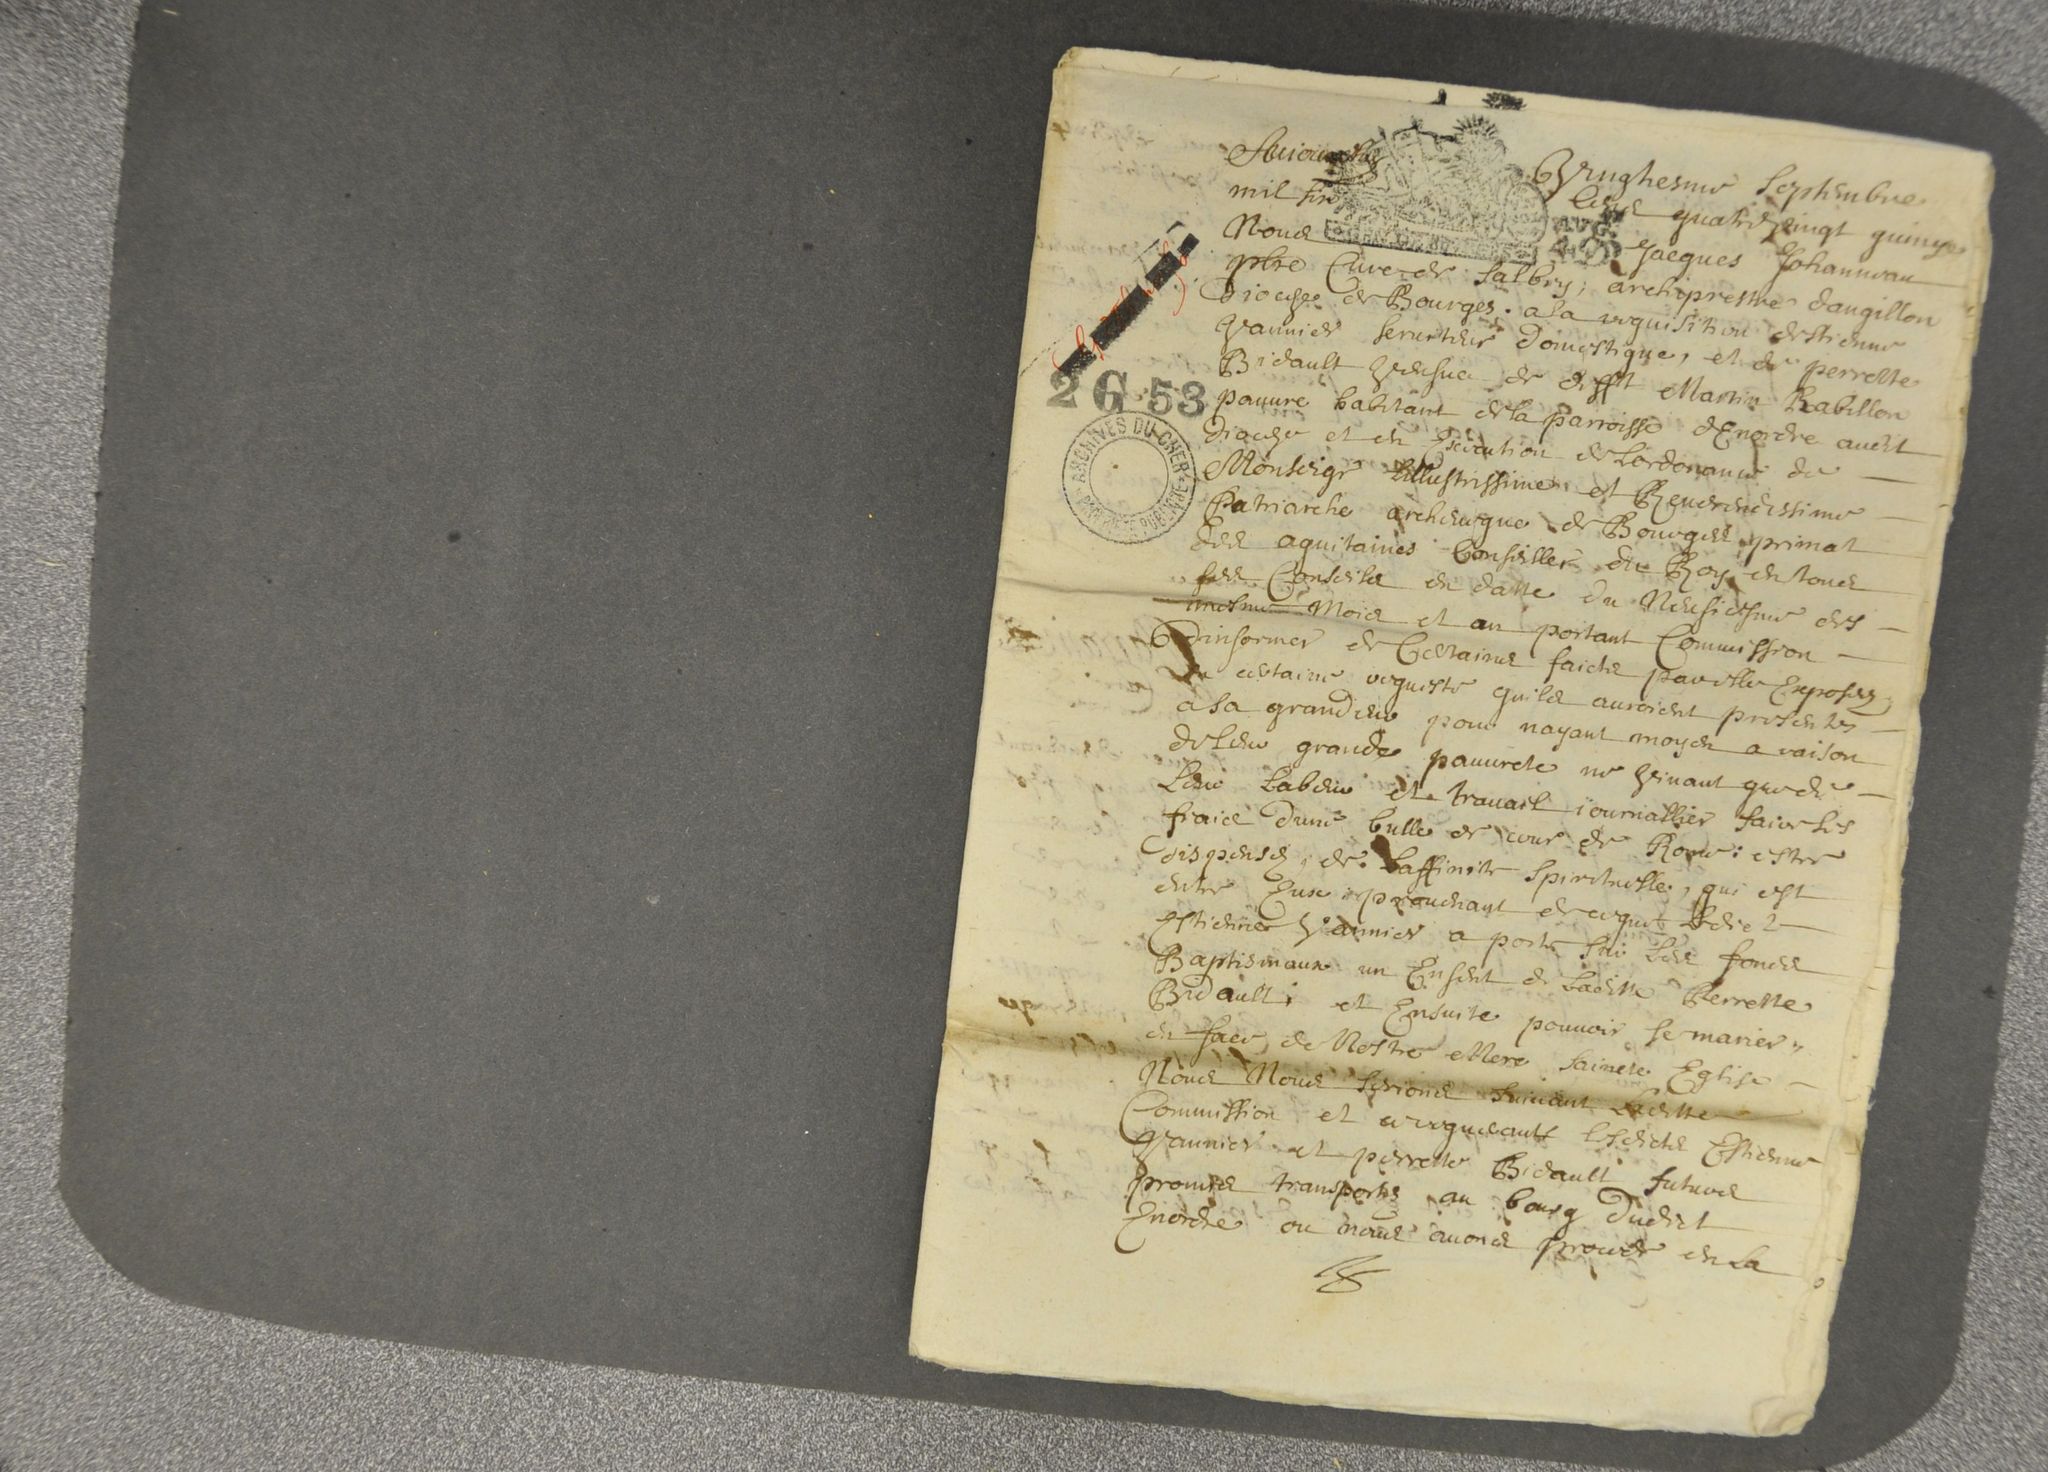 Aujourdhuy Vingtiesme septembre
mil six Cens quatre vingt quinze
Nous Jacques Johanneau
AUG.
40
pbre Cure de Salbry, archiprestre dangillon
Diocese de Bourges. a la requisition destienne
Vannier seruiteur Domestique, et de perrette
Bidault vefue de defft Martin Rabillon
pauure habitant de la parroisse dEnordre audit
Diocese et en Execution de Lordonance de
Monseigr Lillustrissime et Reuerendissime
Patriarche archeuesque de Bourges primat
des aquitaines Conseiller du Roy en tous
ses Conseils en datte du Neufiesme des
mesme Mois et an portant Commission
Dinformer de Certains faicts par elle Exposez
En certaine requeste quils auroient presentes
a sa grandeur pour nayant moyen a raison
de leur grande pauurete ne viuant que de
Leur Labeur et trauail iournallier faire les
fraics dune bulle de cour de Rome: estre
dispense, de Laffinite spirituelle, qui est
entre Eux prouenant de ce que Ledict
Estienne Vannier a porte sur Les fonds
Baptismaux un Enfent de Laditte Perrette
Bidault; et Ensuite pouuoir se marier,
en face de Nostre Mere saincte Eglise
Nous Nous serions suiuant Laditte
Commission et ce requerants lesdicts Estienne
Vannier et perrette Bidault futurs
promis transportes au bourg dudict
Enordre ou nous auons procede en La
2 G 53
ARCHIVES DU CHER